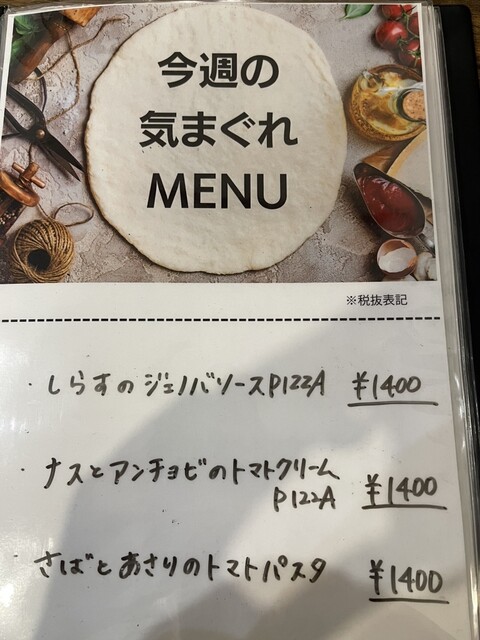 今週の
気まぐれ
MENU
※税抜表記
・しらすのジェノバソースPIZZA ¥1400
・ナスとアンチョビのトマトクリーム
PIZZA ¥1400
さばとあさりのトマトパスタ ¥1400